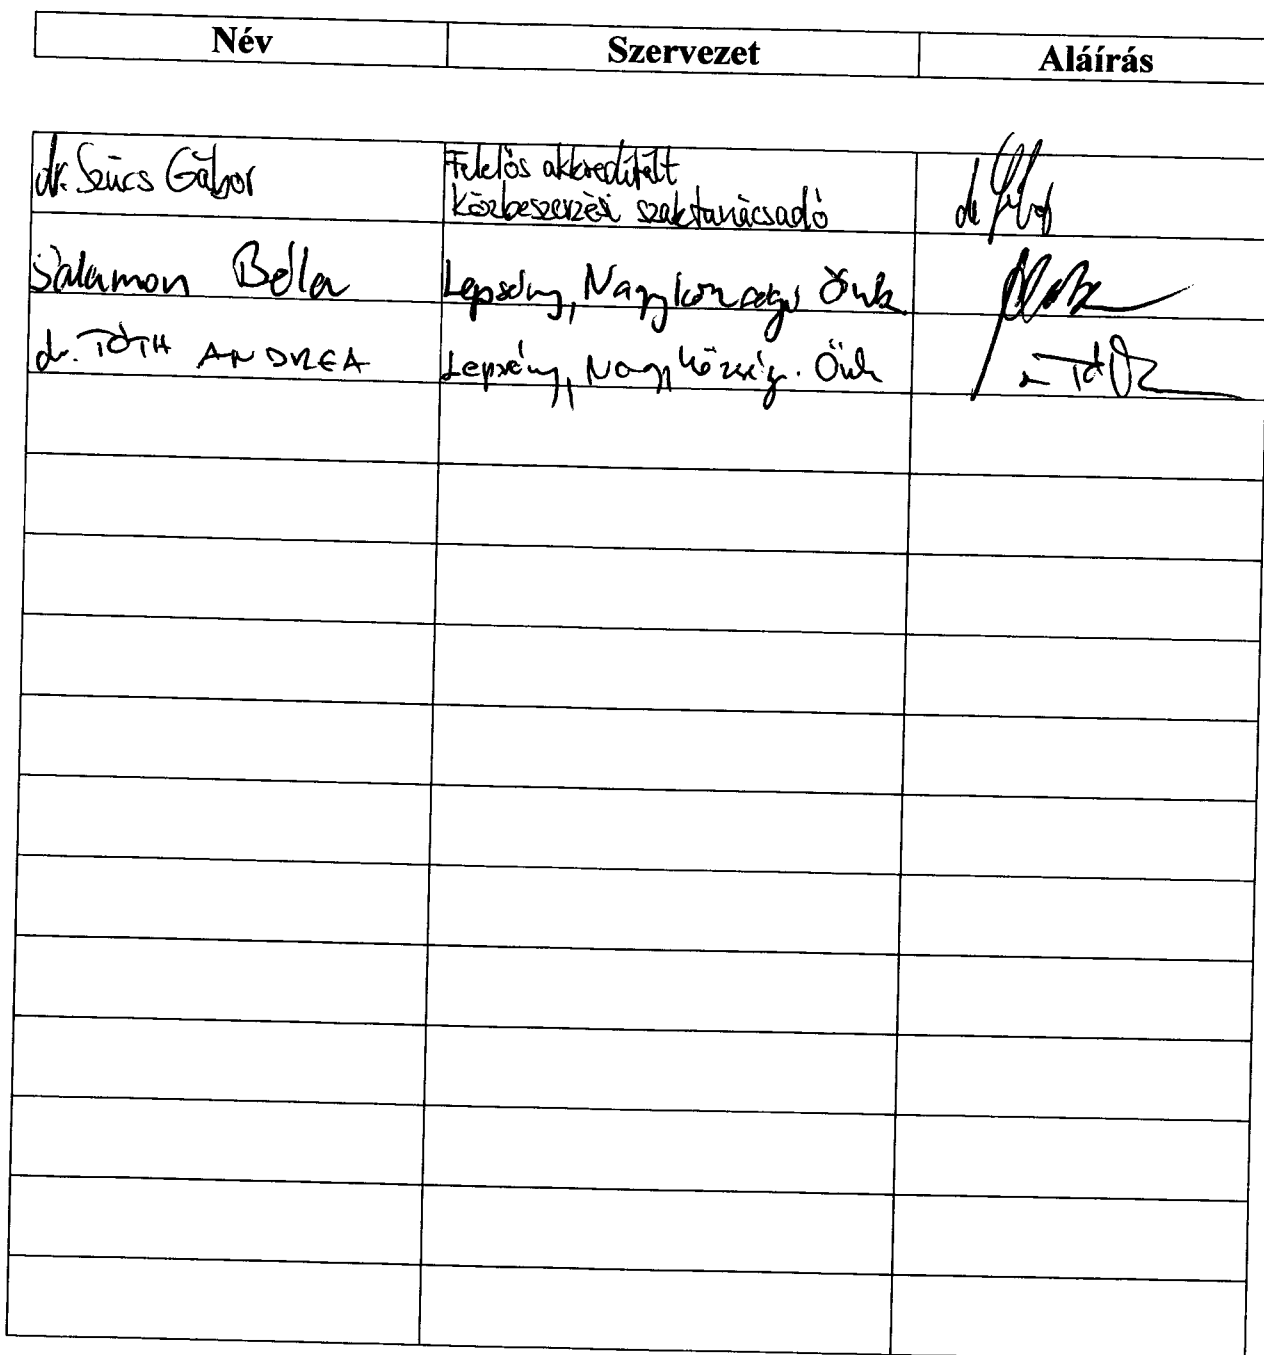 Név Szervezet Aláírás
dr. Szücs Gábor Felelős akkreditált
közbeszerzési szaktanácsadó
Salamon Béla Lepsény, Nagyközségi Önk
dr. TÓTH ANDREA Lepsény, Nagyközség. Önk